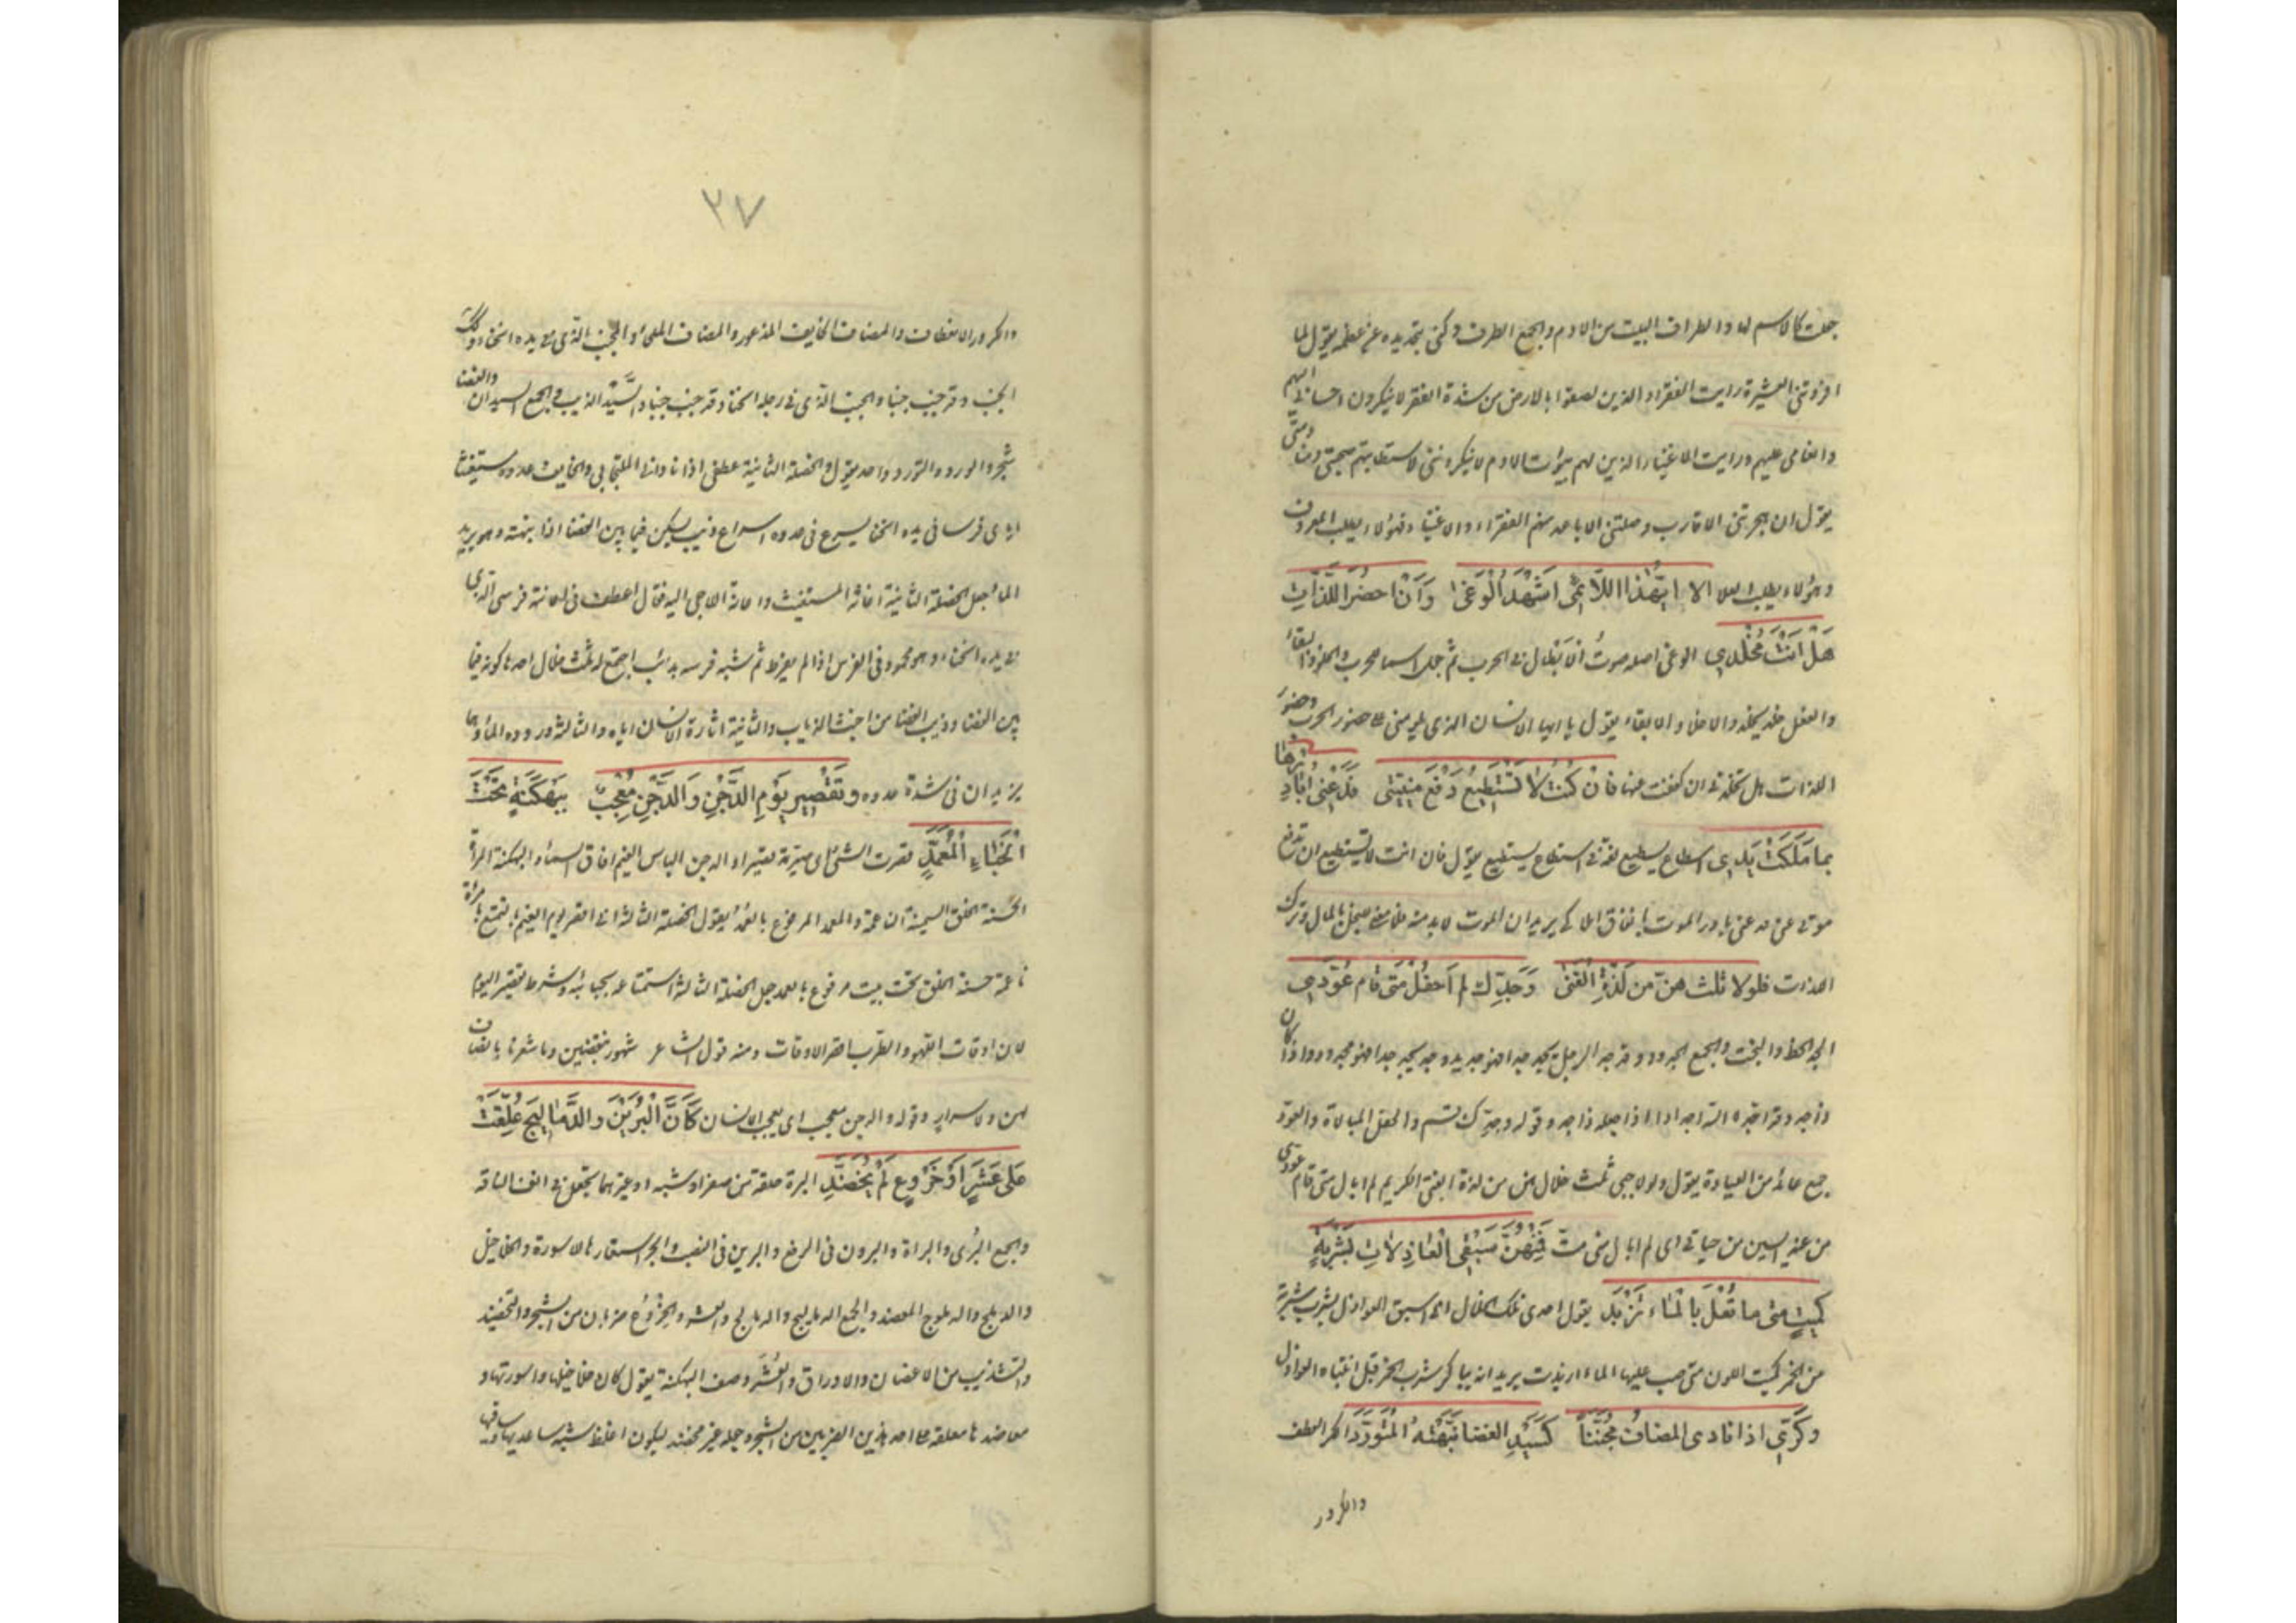 جعلت كالاسم لها والطراف البيت من الادم والجمع الطرف وكنى بتمديده عن عظمه يقول لما
افردتني العشيرة رايت الفقراء الذين لصقوا بالارض من شدة الفقر لا ينكرون احساني اليهم
وانعامي عليهم ورايت الاغنياء الذين لهم بيوت الادم لا ينكرونني لاستطابتهم صحبتي ومنادمتي
يقول ان هجرتني الاقارب وصلتني الاباعد منهم الفقراء والاغنياء فهؤلاء لطلب المعروف
وهؤلاء لطلب العلا الا ايهذا اللائمي اشهد الوغى وان احضر اللذات
هل انت مخلدي الوغى اصله صوت الابطال في الحرب ثم جعل اسما للحرب والخلود البقاء
والفعل خلد يخلد والاخلاد الابقاء يقول يا ايها الانسان الذي يلومني على حضور الحرب وحضور
اللذات هل تخلدني ان كففت عنها فان كنت لا تستطيع دفع منيتي فدعني ابادرها
بما ملكت يدي اسطاع يسطيع لغة في استطاع يستطيع يقول فان انت لا تستطيع ان تدفع
موتي عني فدعني ابادر الموت بانفاق املاكي يريد ان الموت لا بد منه فلا معنى للبخل بالمال وترك
اللذات فلولا ثلث هن من لذة الفتى وجدك لم احفل متى قام عودي
الجد الحظ والبخت والجمع الجدود وقد جد الرجل يجد جدا فهو جديد وجد يجد جدا فهو مجدود اذا كان
ذا جد وقد اجده الله اجدادا اذا جعله ذا جد وقوله وجدك قسم والحفل المبالاة والعود
جمع عائد من العيادة يقول ولولا حبي ثلث خلال هن من لذة الفتى الكريم لم ابال متى قام عودي
من عندي آيسين من حياتي اي لم ابال متى مت فمنهن سبقي العاذلات بشربة
كميت متى ما تعل بالماء تزبد يقول احدى تلك الخلال اني اسبق العواذل بشرب شربة
من الخمر كميت اللون متى صب عليها الماء ازبدت يريد انه يباكر شرب الخمر قبل انتباه العواذل
وكري اذا نادى المضاف مجنبا كسيد الغضا نبهته المتورد الكر العطف
والكرور
٢٧
والكرور الانعطاف والمضاف الخايف المذعور والمضاف الملجأ والمجنب الذي في يده انحناء وكك
الجنب وقد جنب جنبا والمحنب الذي في رجله انحناء وقد حنب حنبا والسيد الذيب والجمع السيدان والغضا
شجر والورود والتورد واحد يقول والخصلة الثانية عطفي اذا ناداني الملتجي الي والخايف عدوه مستغيثا
اياي فرسا في يده انحناء يسرع في عدوه اسراع ذيب يسكن فيما بين الغضا اذا نبهته وهو يريد
الماء جعل الخصلة الثانية اغاثة المستغيث واعانة اللاجي اليه فقال اعطف في اعانته فرسي الذي
في يده انحناء وهو محمود في الفرس اذا لم يفرط ثم شبه فرسه بذئب اجتمع له ثلث خلال احدها كونه فيما
بين الغضا وذيب الغضا من اخبث الذياب والثانية اثارة الانسان اياه والثالثة وروده الماء وهما
يزيدان في شدة عدوه وتقصير يوم الدجن والدجن معجب ببهكنة تحت
الخباء المعمد قصرت الشئ اي صيرته قصيرا والدجن الباس الغيم افاق السماء والبهكنة المرأة
الحسنة الخلق السمينة الناعمة والمعمد المرفوع بالعمد يقول الخصلة الثالثة اني اقصر يوم الغيم بالتمتع بامرأة
ناعمة حسنة الخلق تحت بيت مرفوع بالعمد جعل الخصلة الثالثة استمتاعه بحبائبه وشرط تقصير اليوم
لان اوقات اللهو والطرب اقصر الاوقات ومنه قول الشاعر شهور ينقضين وما شعرنا بانصاف
لهن ولا سرار وقوله والدجن معجب اي يعجب الانسان كان البرين والدماليج علقت
على عشر او خروع لم يخضد البرة حلقة من صفر او شبه او غيرهما تجعل في انف الناقة
والجمع البرى والبراة والبرون في الرفع والبرين في النصب والجر استعارها للاسورة والخلاخيل
والدملج والدملوج المعضد والجمع الدماليج والدمالج والعشر والخروع ضربان من الشجر والتخضيد
التشذيب من الاغصان والاوراق والعشر وصف البهكنة يقول كان خلاخيلها واسورتها و
معاضدها معلقة على احد هذين الضربين من الشجر وجعله غير مخضد ليكون اغلظ شبه ساعديها وساقيها